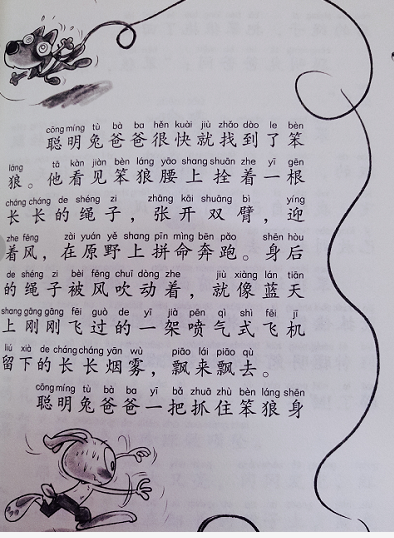 cōng míng tù bà ba hěn kuài jiù zhǎo dào le bèn
聪明兔爸爸很快就找到了笨
láng tā kàn jiàn bèn láng yāo shang shuān zhe yī gēn
狼。他看见笨狼腰上拴着一根
cháng cháng de shéng zi zhāng kāi shuāng bì yíng
长长的绳子，张开双臂，迎
zhe fēng zài yuán yě shang pīn mìng bēn pǎo shēn hòu
着风，在原野上拼命奔跑。身后
de shéng zi bèi fēng chuī dòng zhe jiù xiàng lán tiān
的绳子被风吹动着，就像蓝天
shang gāng gāng fēi guò de yī jià pēn qì shì fēi jī
上刚刚飞过的一架喷气式飞机
liú xià de cháng cháng yān wù piāo lái piāo qù
留下的长长烟雾，飘来飘去。
cōng míng tù bà ba yī bǎ zhuā zhù bèn láng shēn
聪明兔爸爸一把抓住笨狼身